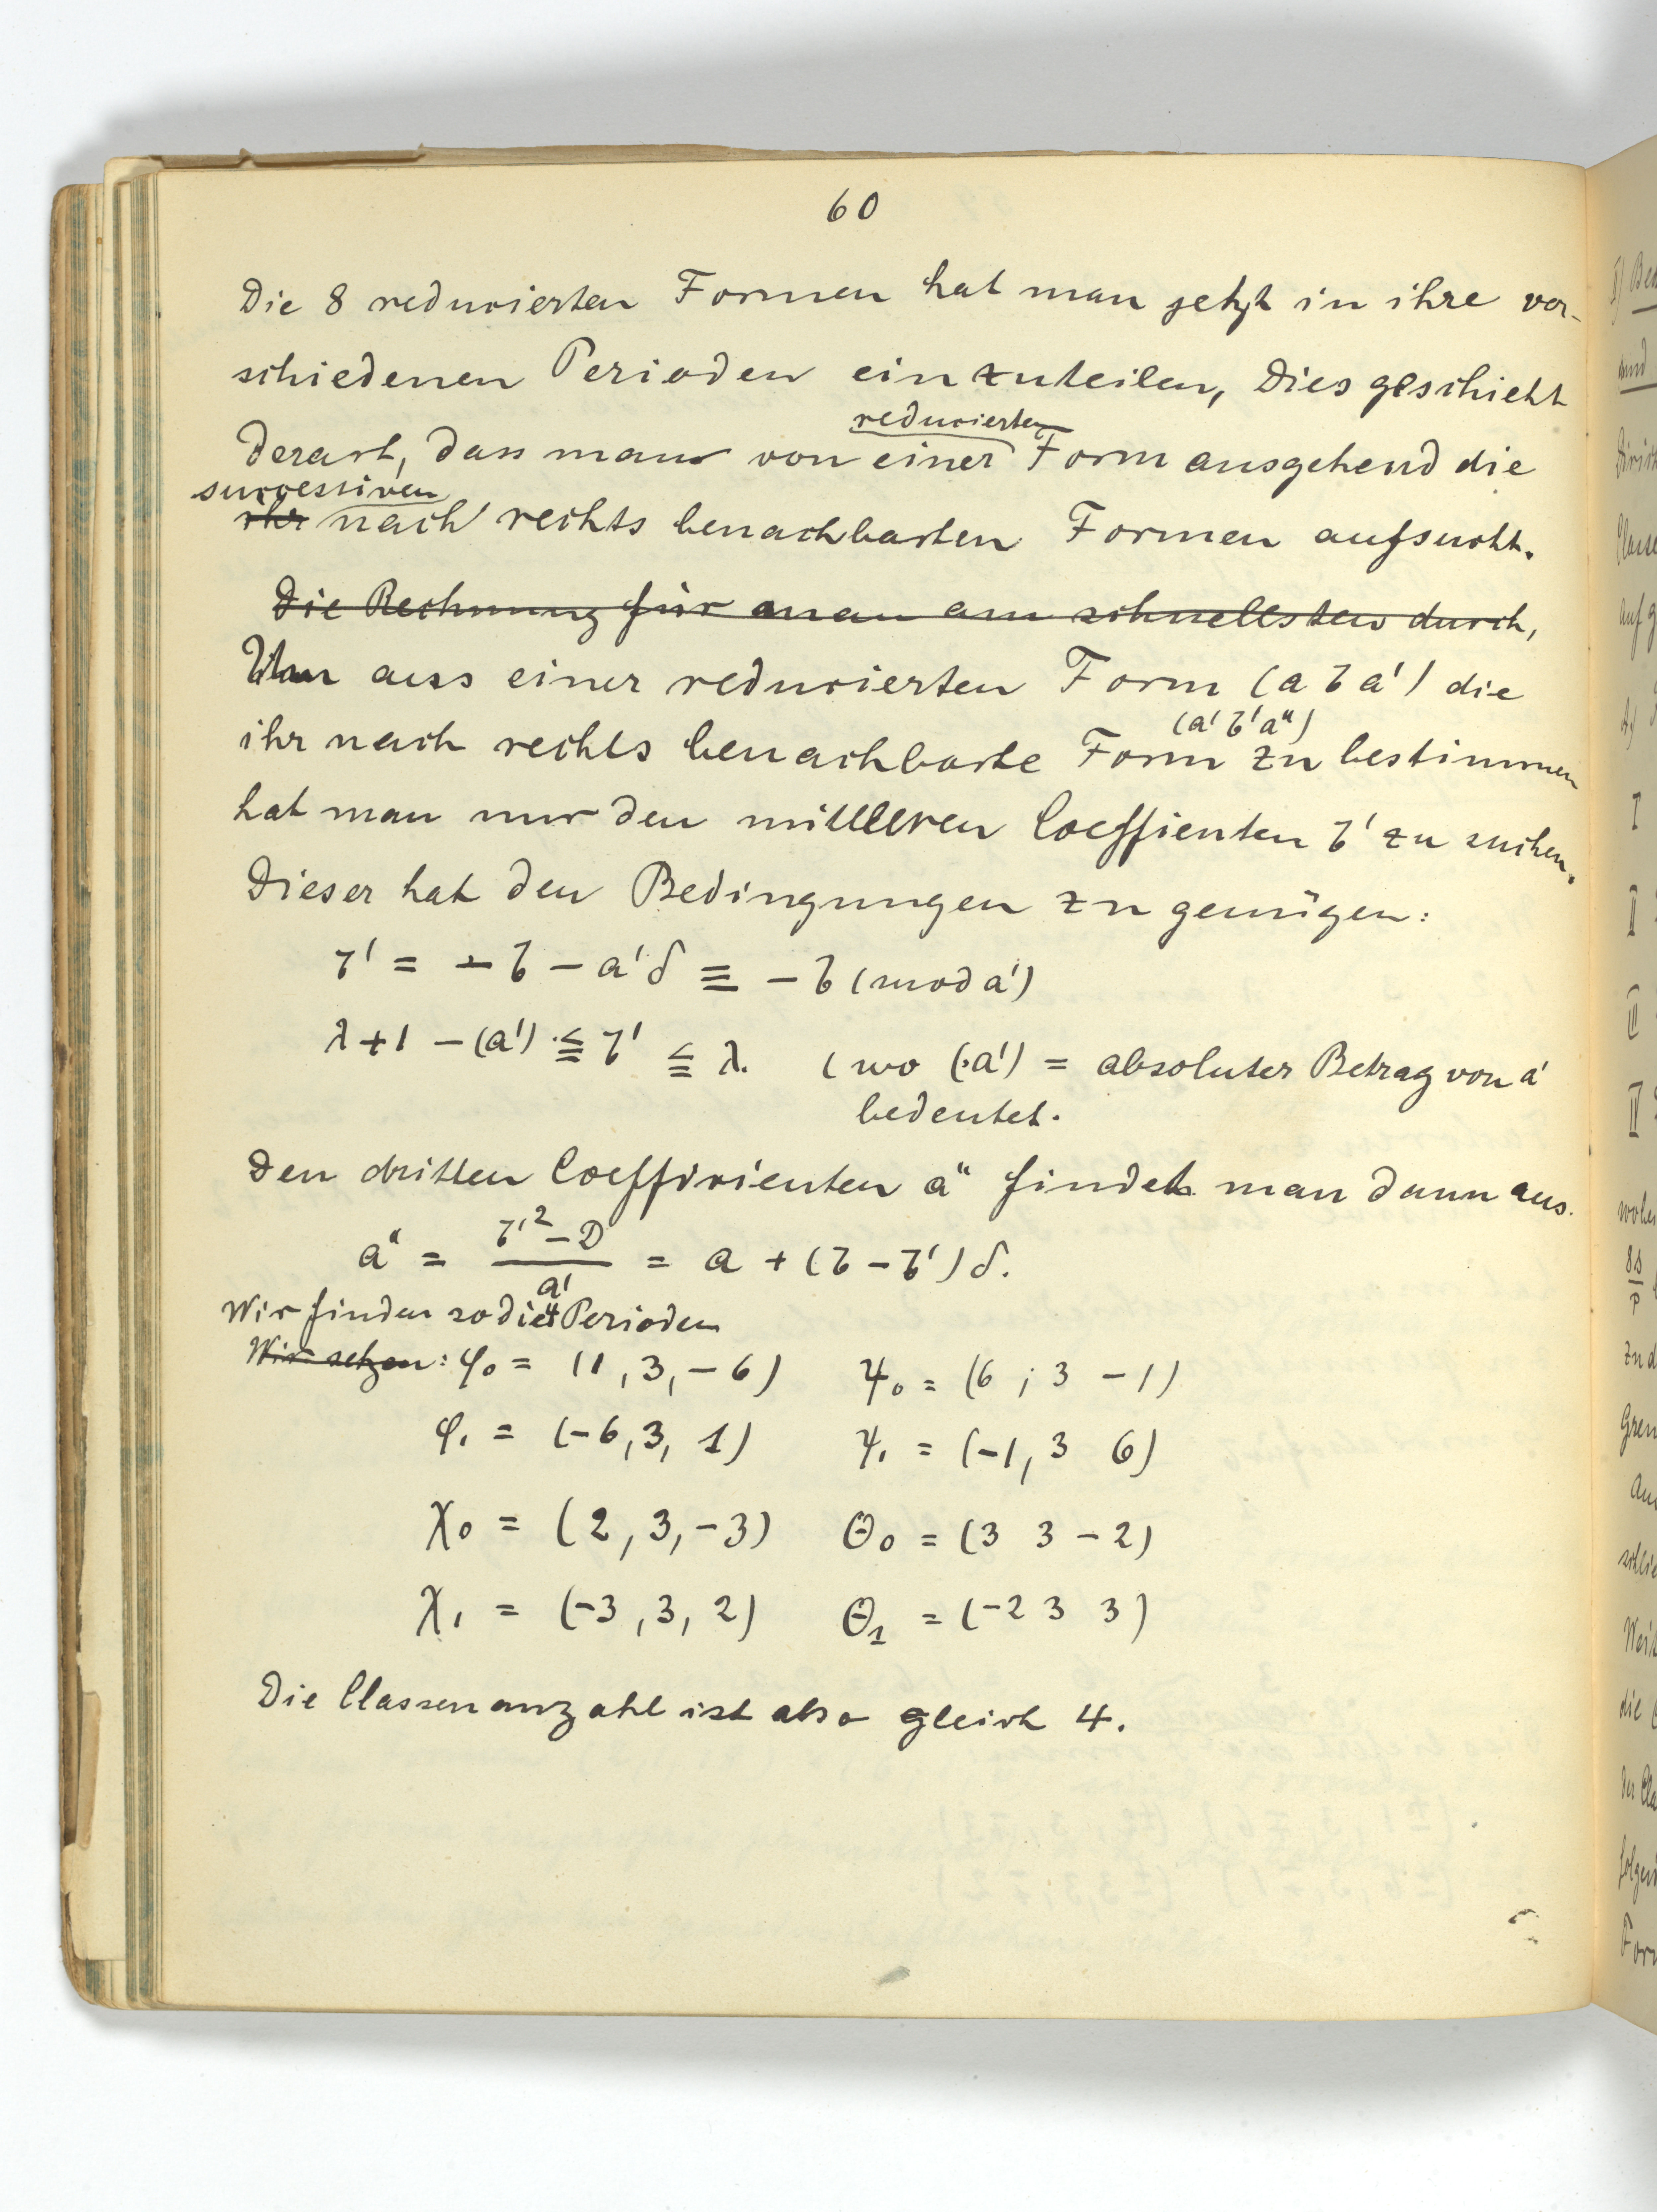 60
Die 8 reducierten Formen hat man jetzt in ihre ver-
schiedenen Perioden einzuteilen, Dies geschieht
reducierten
derart, dass man von einer Form ausgehend die
successiven
ihr nach rechts benachbarten Formen aufsucht.
Die Rechnung für man am schnellsten durch,
Um aus einer reducierten Form (a b a') die
(a' b' a'')
ihr nach rechts benachbarte Form zu bestimmen
hat man nur den mittleren Coeffienten b' zu suchen.
Dieser hat den Bedingungen zu genügen:
b' = - b - a'δ ≡ - b (mod a')
λ + 1 - (a') ≦ b' ≦ λ. (wo (a') = absoluter Betrag von a'
bedeutet.
Den dritten Coefficienten a'' findet man dann aus.
a'' = b'² - D / a' = a + (b - b') δ.
Wir finden so die 4 Perioden
Wir setzen: φ₀ = (1, 3, - 6) ψ₀ = (6 ; 3 - 1)
φ₁ = (-6, 3, 1) ψ₁ = (-1, 3 6)
χ₀ = (2, 3, -3) Θ₀ = (3 3 - 2)
χ₁ = (-3, 3, 2) Θ₁ = (-2 3 3)
Die Classenanzahl ist also gleich 4.